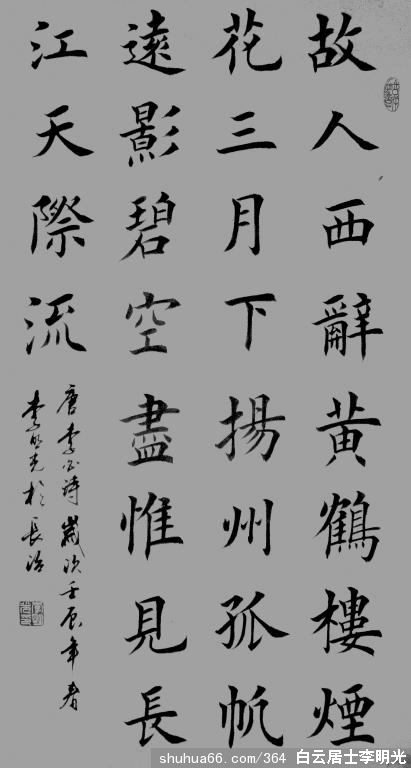 故人西辭黃鶴樓煙
花三月下揚州孤帆
遠影碧空盡惟見長
江天際流
唐李白詩歲次壬辰年春
李明光於長治
shuhua66.com/364 白云居士李明光